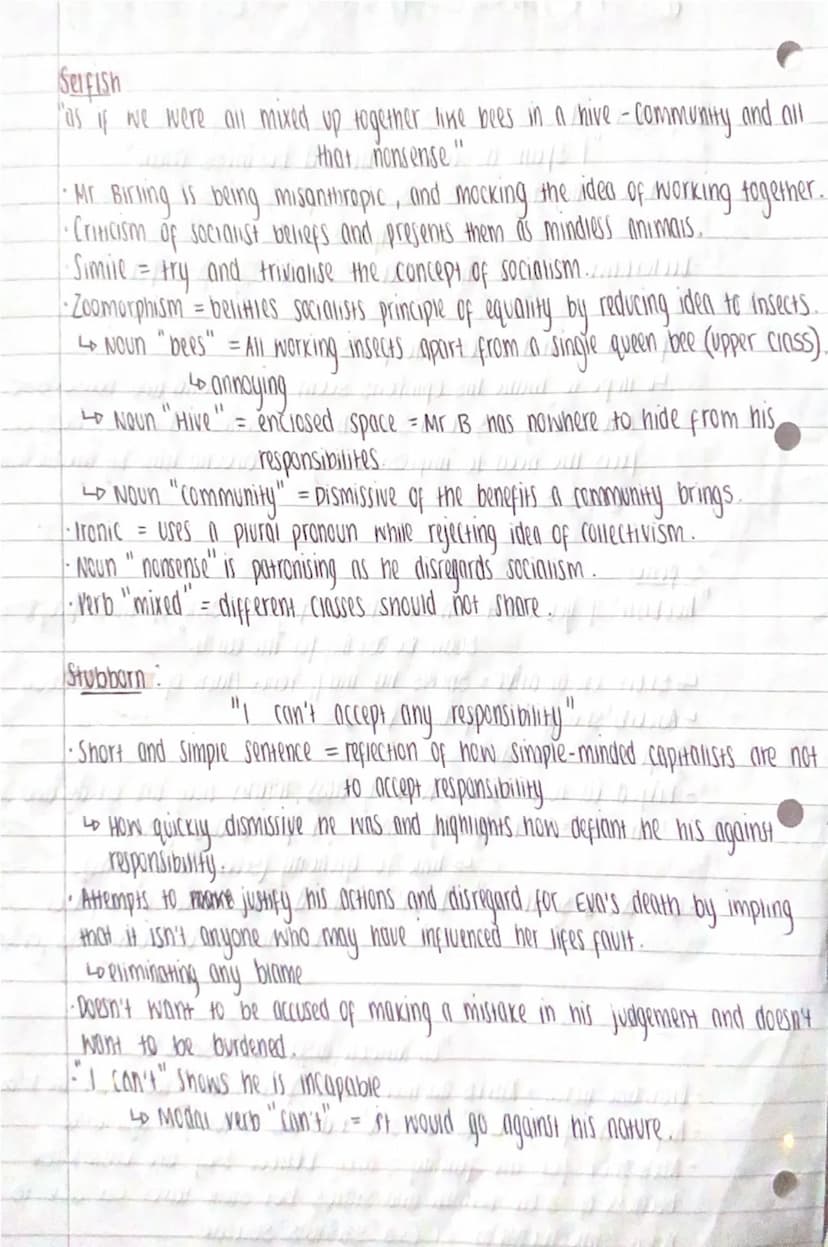 Selfish
"as if we were all mixed up together like bees in a hive - community and all
that nonsense"
· Mr Birling is being misanthropic, and mocking the idea of working together.
· Criticism of socialist beliefs and presents them as mindless animals.
· Simile = try and trivialise the concept of socialism.
· Zoomorphism = belittles socialists principle of equality by reducing idea to insects.
↳ Noun "bees" = All working insects apart from a single queen bee (upper class).
↳ annoying
↳ Noun "Hive" = enclosed space = Mr B has nowhere to hide from his
responsibilites.
↳ Noun "community" = Dismissive of the benefits a community brings.
· Ironic = uses a plural pronoun while rejecting idea of collectivism.
· Noun "nonsense" is patronising as he disregards socialism.
· Verb "mixed" = different classes should not share.
Stubborn:
"I can't accept any responsibility"
· Short and simple sentence = reflection of how simple-minded capitalists are not
to accept responsibility
↳ How quickly dismissive he was and highlights how defiant he his against
responsibility.
· Attempts to justify his actions and disregard for Eva's death by impling
that it isn't anyone who may have influenced her lifes fault.
↳ eliminating any blame
· Doesn't want to be accused of making a mistake in his judgement and doesn't
want to be burdened.
· "I can't" shows he is incapable
↳ Modal verb "can't" = it would go against his nature.